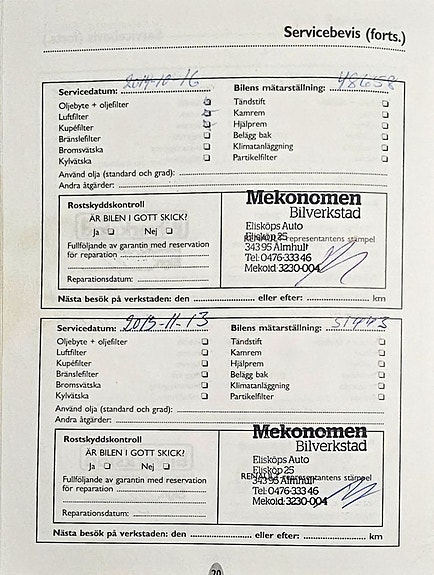 Servicebevis (forts.)
Servicedatum: 2014-10-16 Bilens mätarställning: 48658
Oljebyte + oljefilter Tändstift
Luftfilter Kamrem
Kupéfilter Hjälprem
Bränslefilter Belägg bak
Bromsvätska Klimatanläggning
Kylvätska Partikelfilter
Använd olja (standard och grad):
Andra åtgärder:
Rostskyddskontroll
ÄR BILEN I GOTT SKICK?
Ja Nej
Fullföljande av garantin med reservation
för reparation
Reparationsdatum:
Mekonomen
Bilverkstad
Elisköps Auto
Elisköp 25
RENAULT-representantens stämpel
343 95 Älmhult
Tel: 0476-333 46
Mekoid: 3230-004
Nästa besök på verkstaden: den eller efter: km
Servicedatum: 2015-11-13 Bilens mätarställning: 51443
Oljebyte + oljefilter Tändstift
Luftfilter Kamrem
Kupéfilter Hjälprem
Bränslefilter Belägg bak
Bromsvätska Klimatanläggning
Kylvätska Partikelfilter
Använd olja (standard och grad):
Andra åtgärder:
Rostskyddskontroll
ÄR BILEN I GOTT SKICK?
Ja Nej
Fullföljande av garantin med reservation
för reparation
Reparationsdatum:
Mekonomen
Bilverkstad
Elisköps Auto
Elisköp 25
RENAULT-representantens stämpel
343 95 Älmhult
Tel: 0476-333 46
Mekoid: 3230-004
Nästa besök på verkstaden: den eller efter: km
20